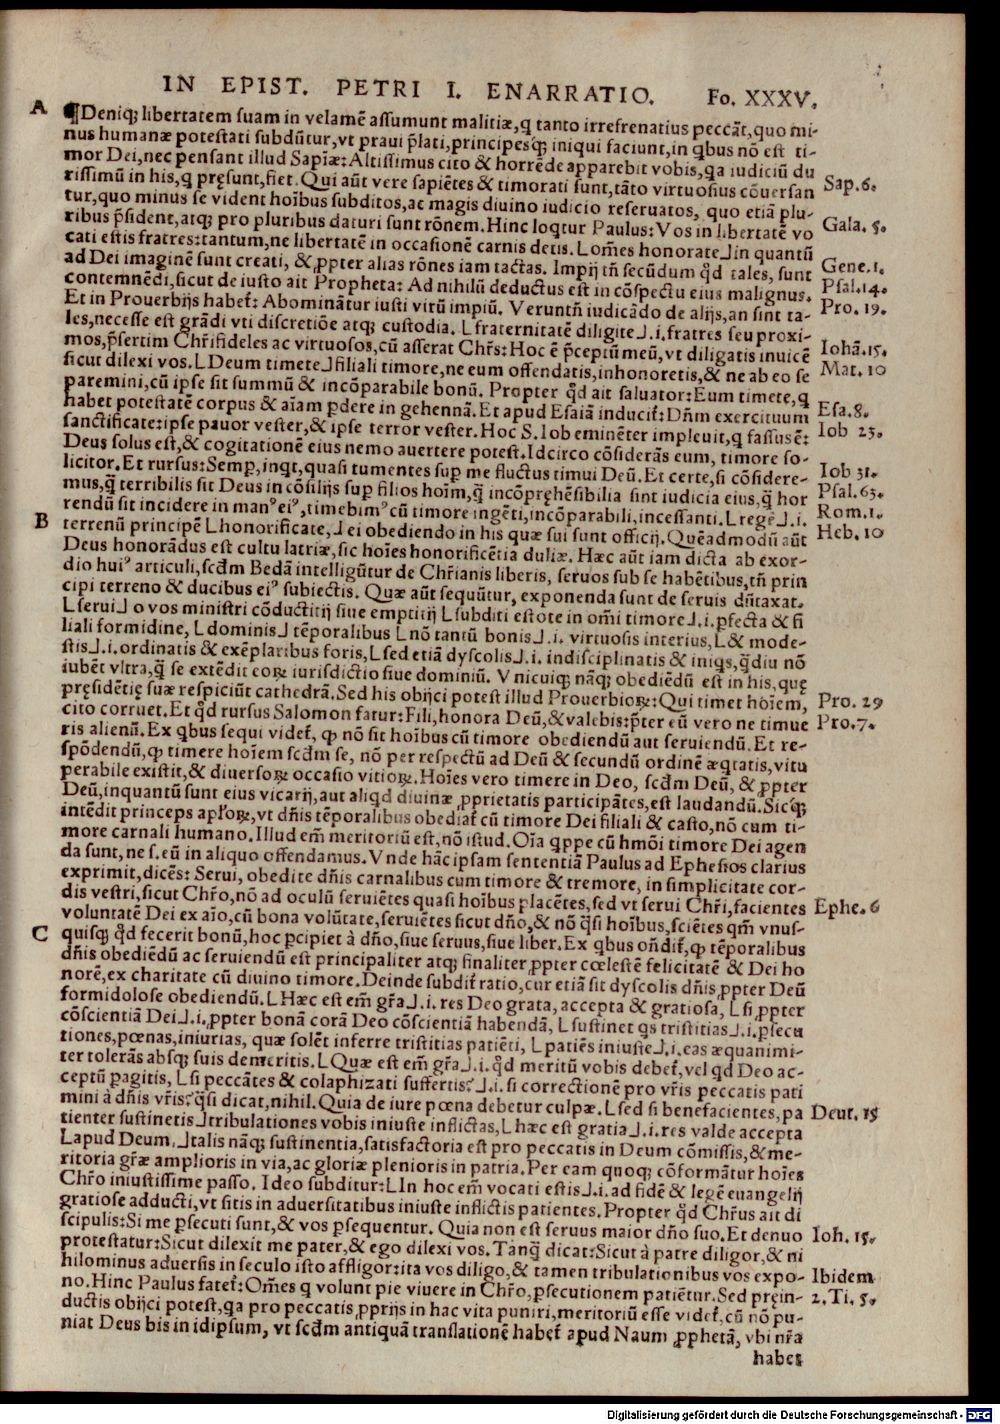 IN EPIST. PETRI I. ENARRATIO. Fo. XXXV.
A
¶Deniq; libertatem suam in velamē assumunt malitiæ, q tanto irrefrenatius peccāt, quo mi-
nus humanæ potestati subdūtur, vt praui p̄lati, principesq; iniqui faciunt, in qbus nō est ti-
mor Dei, nec pensant illud Sapiæ: Altissimus cito & horrēde apparebit vobis, qa iudiciū du
rissimū in his, q pręsunt, fiet. Qui aūt vere sapiētes & timorati sunt, tāto virtuosius cōuersan Sap. 6.
tur, quo minus se vident hoībus subditos, ac magis diuino iudicio reseruatos, quo etiā plu-
ribus p̄sident, atq; pro pluribus daturi sunt rōnem. Hinc loqtur Paulus: Vos in libertatē vo Gala. 5.
cati estis fratres: tantum, ne libertatē in occasionē carnis detis. Lom̄es honorate⅃ in quantū
ad Dei imaginē sunt creati, & ꝓpter alias rōnes iam tactas. Impij tn̄ secūdum qd̄ tales, sunt Gene. 1.
contemnēdi, sicut de iusto ait Propheta: Ad nihilū deductus est in cōspectu eius malignus. Psal. 14.
Et in Prouerbijs habet̄: Abominātur iusti virū impiū. Veruntn̄ iudicādo de alijs, an sint ta- Pro. 19.
les, necesse est grādi vti discretiōe atq; custodia. L fraternitatē diligite⅃.i. fratres seu proxi-
mos, p̄sertim Chr̄ifideles ac virtuosos, cū asserat Chr̄s: Hoc ē p̄ceptū meū, vt diligatis inuicē Iohā. 15.
sicut dilexi vos. L Deum timete⅃ filiali timore, ne eum offendatis, inhonoretis, & ne ab eo se Mat. 10
paremini, cū ipse sit summū & incōparabile bonū. Propter qd̄ ait saluator: Eum timete, q
habet potestatē corpus & aīam ꝑdere in gehennā. Et apud Esaiā inducit̄: Dn̄m exercituum Esa. 8.
sanctificate: ipse pauor vester, & ipse terror vester. Hoc S. Iob eminēter impleuit, q fassus ē: Iob 23.
Deus solus est, & cogitationē eius nemo auertere potest. Idcirco cōsiderās eum, timore so-
licitor. Et rursus: Semꝑ, inqt, quasi tumentes suꝑ me fluctus timui Deū. Et certe, si cōsidere- Iob 31.
mus, q̄ terribilis sit Deus in cōsilijs suꝑ filios hoīm, q̄ incōpręhēsibilia sint iudicia eius, q̄ hor Psal. 63.
rendū sit incidere in manꝰ eiꝰ, timebimꝰ cū timore ingēti, incōparabili, incessanti. L regē⅃.i. Rom. 1.
B
terrenū principē L honorificate,⅃ ei obediendo in his quæ sui sunt officij. Quēadmodū aūt Heb. 10
Deus honorādus est cultu latriæ, sic hoīes honorificētia duliæ. Hæc aūt iam dicta ab exor-
dio huiꝰ articuli, scd̄m Bedā intelligūtur de Chr̄ianis liberis, seruos sub se habētibus, tn̄ prin
cipi terreno & ducibus eiꝰ subiectis. Quæ aūt sequūtur, exponenda sunt de seruis dūtaxat.
L serui⅃ o vos ministri cōductitij siue emptitij L subditi estote in om̄i timore⅃.i. ꝑfecta & fi
liali formidine, L dominis⅃ tēporalibus L nō tantū bonis⅃.i. virtuosis interius, L & mode-
stis⅃.i. ordinatis & exēplaribus foris, L sed etiā dyscolis⅃.i. indisciplinatis & iniqs, q̄diu nō
iubēt vltra, q̄ se extēdit coꝝ iurisdictio siue dominiū. Vnicuiq; nāq; obediēdū est in his, quę
pręsidētię suæ respiciūt cathedrā. Sed his obijci potest illud Prouerbioꝝ: Qui timet hoīem, Pro. 29
cito corruet. Et qd̄ rursus Salomon fatur: Fili, honora Deū, & valebis: p̄ter eū vero ne timue Pro. 7.
ris alienū. Ex qbus sequi videt̄, ꝙ nō sit hoībus cū timore obediendū aut seruiendū. Et re-
spōdendū, ꝙ timere hoīem scd̄m se, nō per respectū ad Deū & secundū ordinē æqtatis, vitu
perabile existit, & diuersoꝝ occasio vitioꝝ. Hoīes vero timere in Deo, scd̄m Deū, & ꝓpter
Deū, inquantū sunt eius vicarij, aut aliqd diuinæ ꝓprietatis participātes, est laudandū. Sicq;
intēdit princeps apl̄oꝝ, vt dn̄is tēporalibus obediat̄ cū timore Dei filiali & casto, nō cum ti-
more carnali humano. Illud em̄ meritoriū est, nō istud. Oīa qppe cū hmōi timore Dei agen
da sunt, ne s. eū in aliquo offendamus. Vnde hāc ipsam sententiā Paulus ad Ephesios clarius
exprimit, dicēs: Serui, obedite dn̄is carnalibus cum timore & tremore, in simplicitate cor-
dis vestri, sicut Chr̄o, nō ad oculū seruiētes quasi hoībus placētes, sed vt serui Chr̄i, facientes Ephe. 6
voluntatē Dei ex aīo, cū bona volūtate, seruiētes sicut dn̄o, & nō q̄si hoībus, sciētes qm̄ vnus-
C
quisq; qd̄ fecerit bonū, hoc ꝑcipiet à dn̄o, siue seruus, siue liber. Ex qbus on̄dit̄, ꝙ tēporalibus
dn̄is obediēdū ac seruiendū est principaliter atq; finaliter ꝓpter cœlestē felicitatē & Dei ho
norē, ex charitate cū diuino timore. Deinde subdit̄ ratio, cur etiā sit dyscolis dn̄is ꝓpter Deū
formidolose obediendū. L Hæc est em̄ gr̄a⅃.i. res Deo grata, accepta & gratiosa, L si ꝓpter
cōscientiā Dei⅃.i. ꝓpter bonā corā Deo cōscientiā habendā, L sustinet qs tristitias⅃.i. ꝑsecu
tiones, pœnas, iniurias, quæ solēt inferre tristitias patiēti, L patiēs iniuste⅃.i. eas æquanimi-
ter tolerās absq; suis demeritis. L Quæ est em̄ gr̄a⅃.i. qd̄ meritū vobis debet̄, vel qd Deo ac-
ceptū pagitis, L si peccātes & colaphizati suffertis?⅃.i. si correctionē pro vr̄is peccatis pati
mini à dn̄is vr̄is? q̄si dicat, nihil. Quia de iure pœna debetur culpæ. L sed si benefacientes, pa Deut. 15
tienter sustinetis⅃ tribulationes vobis iniuste inflictas, L hæc est gratia⅃.i. res valde accepta
Lapud Deum.⅃ talis nāq; sustinentia, satisfactoria est pro peccatis in Deum cōmissis, & me-
ritoria gr̄æ amplioris in via, ac gloriæ plenioris in patria. Per eam quoq; cōformātur hoīes
Chr̄o iniustissime passo. Ideo subditur: L In hoc em̄ vocati estis⅃.i. ad fidē & legē euangelij
gratiose adducti, vt sitis in aduersitatibus iniuste inflictis patientes. Propter qd̄ Chr̄us ait di
scipulis: Si me ꝑsecuti sunt, & vos ꝑsequentur. Quia non est seruus maior dn̄o suo. Et denuo Ioh. 15.
protestatur: Sicut dilexit me pater, & ego dilexi vos. Tanq̄ dicat: Sicut à patre diligor, & ni
hilominus aduersis in seculo isto affligor: ita vos diligo, & tamen tribulationibus vos expo- Ibidem
no. Hinc Paulus fatet̄: Om̄es q volunt pie viuere in Chr̄o, ꝑsecutionem patiētur. Sed pręin- 2. Ti. 5.
ductis obijci potest, qa pro peccatis ꝓprijs in hac vita puniri, meritoriū esse videt̄, cū nō pu-
niat Deus bis in idipsum, vt scd̄m antiquā translationē habet̄ apud Naum ꝓphetā, vbi nr̄a
habet
Digitalisierung gefördert durch die Deutsche Forschungsgemeinschaft - DFG